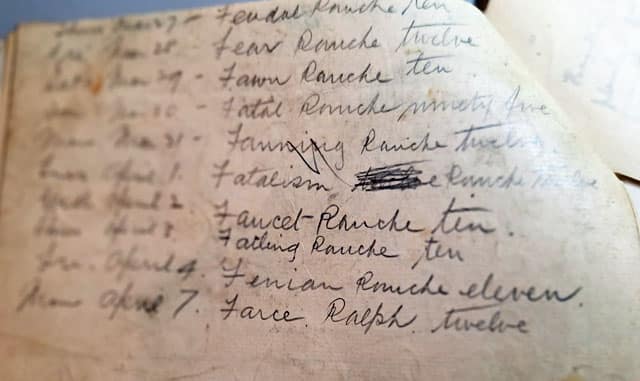 Mar 27 - Feudal Ranche ten
Mar 28 - Fear Ranche twelve
Mar 29 - Fawn Ranche ten
Mar 30 - Fatal Ranche ninety five
Mar 31 - Fanning Ranche twelve.
April 1. Fatalism Ranche twelve
April 2 Faucet Ranche ten.
April 3 Failing Ranche ten
Fri. April 4. Fenian Ranche eleven.
Mon April 7. Farce. Ralph. twelve